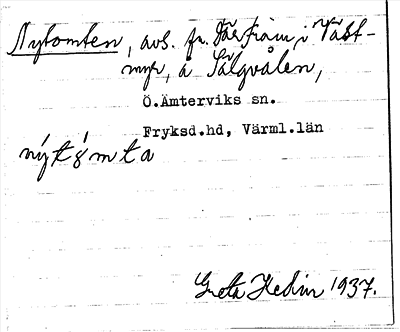 Nytomten, avs. fr. Där fram i Väst-
myr, å Sälgvålen,
Ö.Ämterviks sn.
Fryksd.hd, Värml.län
nýtómta
Greta Hedin 1937.